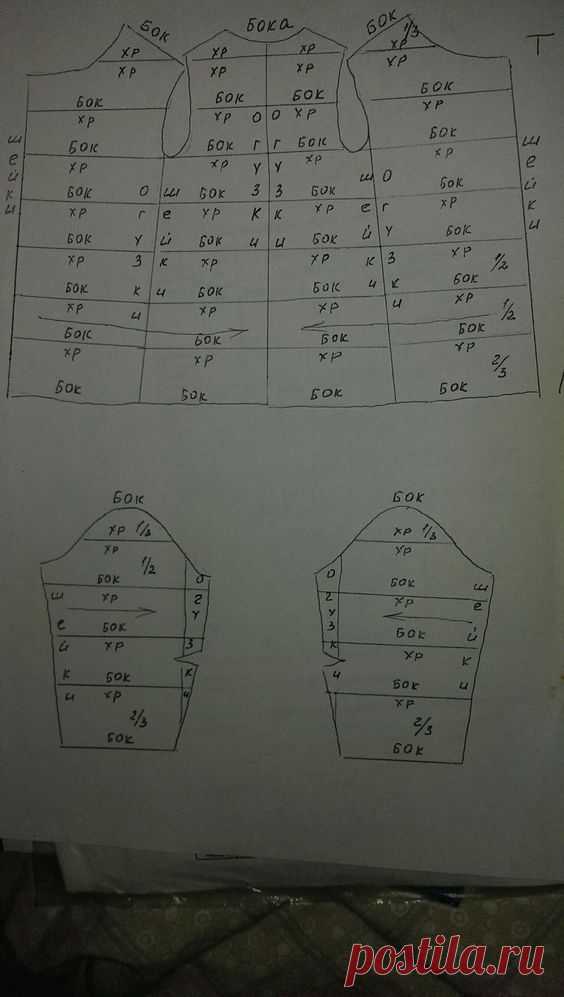 БОК БОКА БОК
ХР ХР ХР ХР 1/3
ХР ХР ХР ХР
БОК БОК БОК БОК
ХР ХР ХР ХР
БОК БОК БОК БОК
ХР ХР ХР ХР
БОК БОК БОК БОК
ХР ХР ХР ХР
БОК БОК БОК БОК
ХР ХР ХР ХР 1/2
БОК БОК БОК БОК
ХР ХР ХР ХР 1/2
БОК БОК БОК БОК
ХР ХР ХР ХР 2/3
БОК БОК БОК БОК
шейки
огузки
шейки
огузки
огузки
шейки
огузки
шейки
Т
БОК
ХР 1/3
ХР
1/2
БОК
ХР
БОК
ХР
БОК
ХР
2/3
БОК
шейки
огузки
БОК
ХР 1/3
ХР
БОК
ХР
БОК
ХР
БОК
ХР
2/3
БОК
огузки
шейки
postila.ru